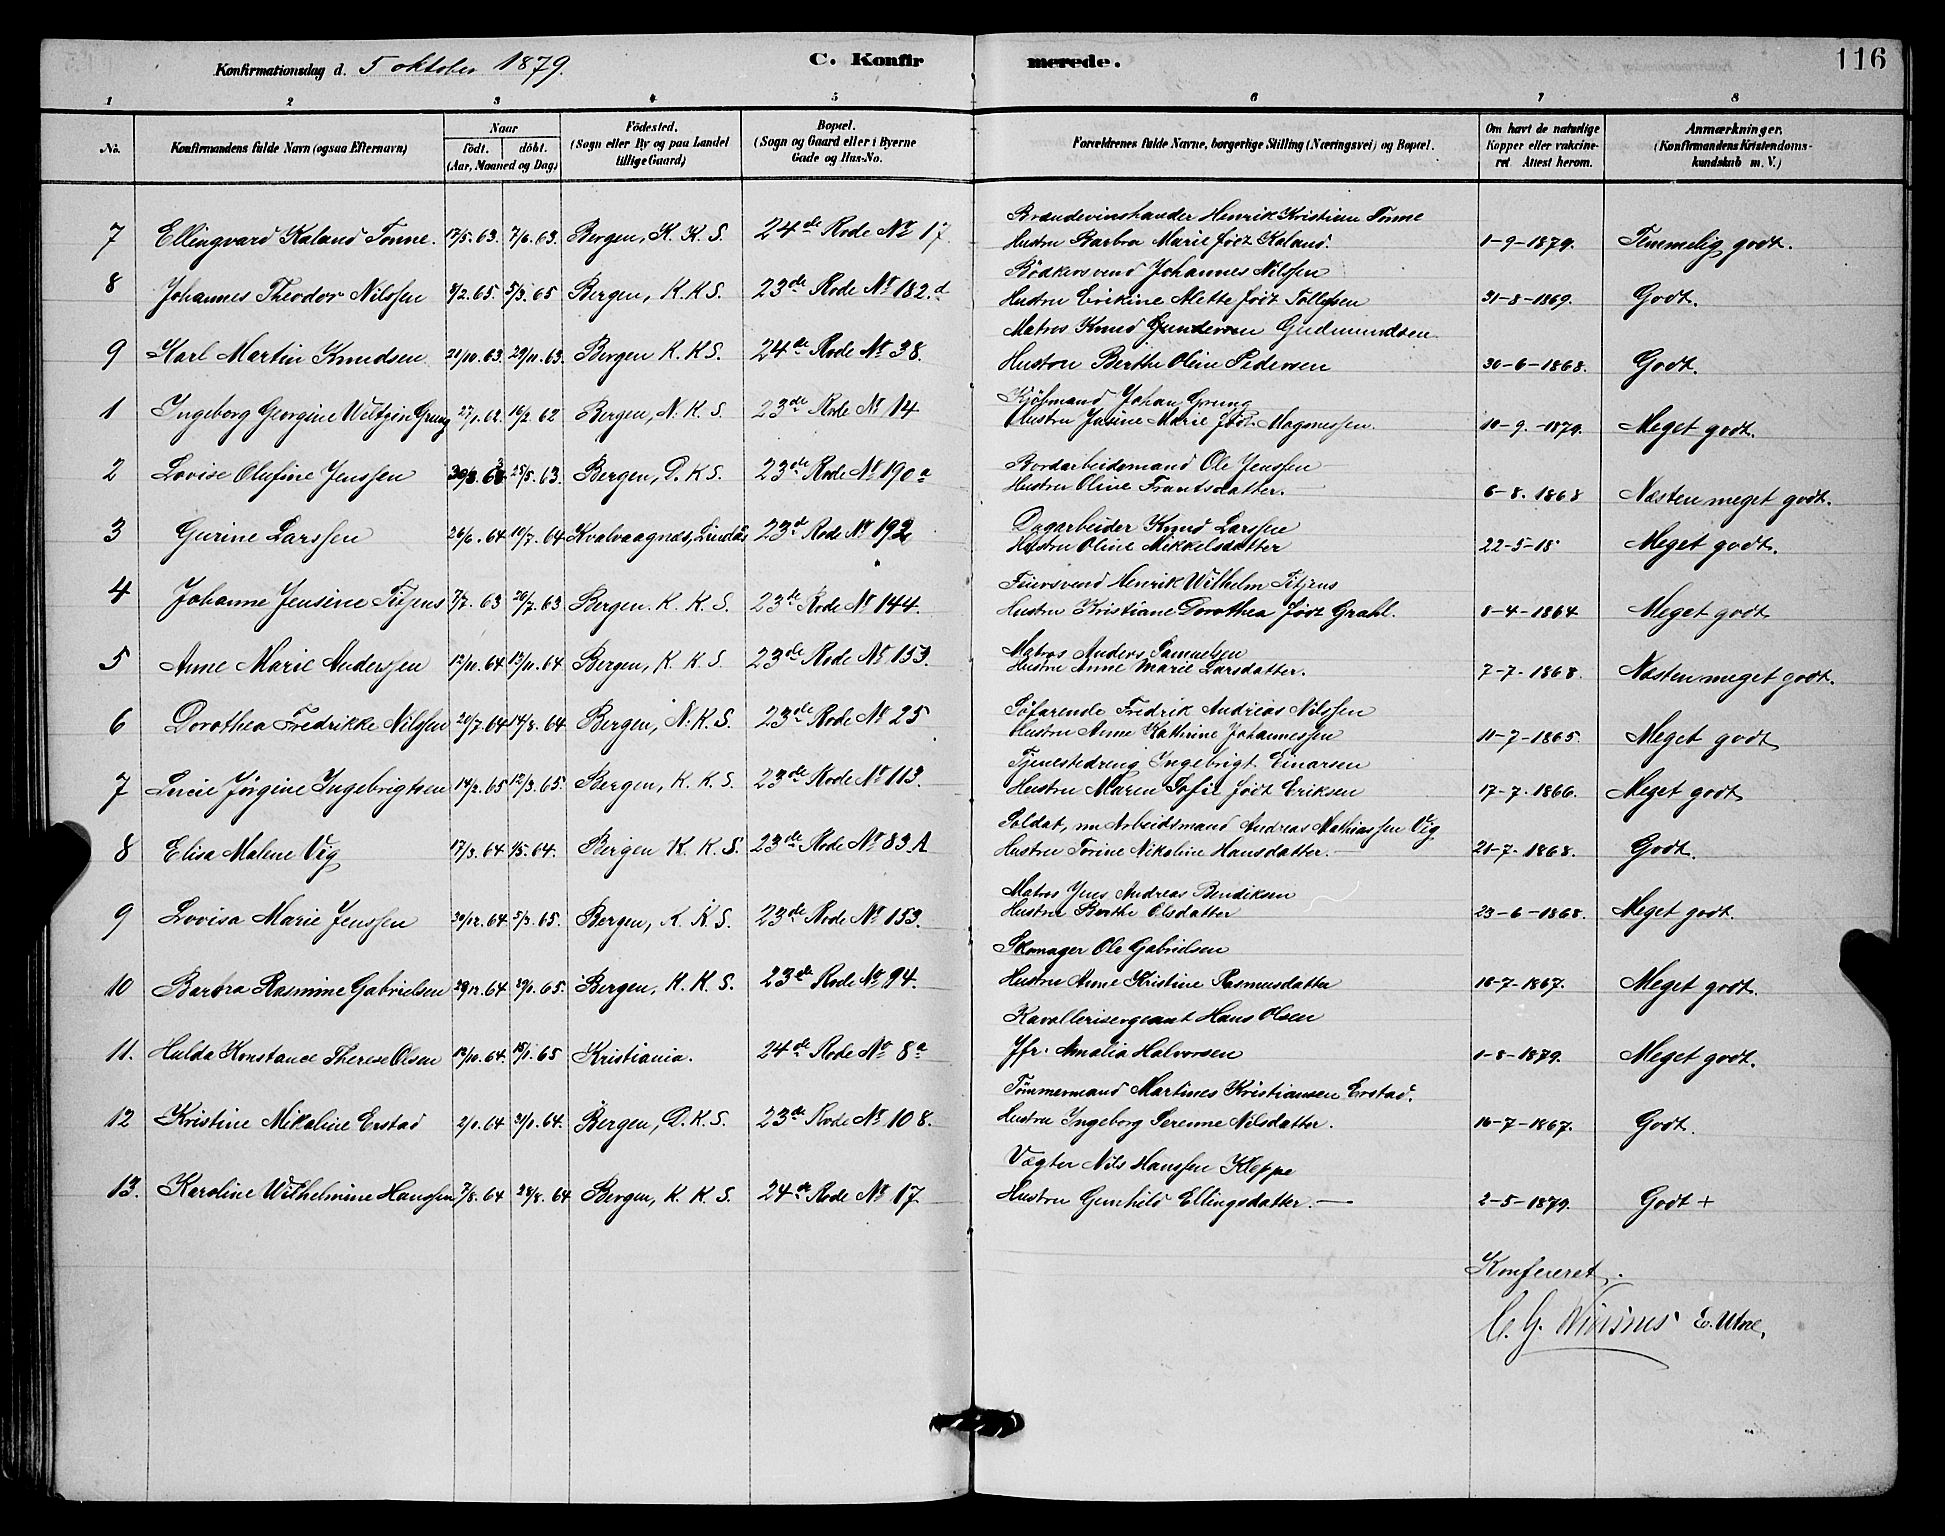 Konfirmationsdag d. 5 oktober 1879. C. Konfirmerede. 116
1 2 3 4 5 6 7 8
No. Konfirmandens fulde Navn (ogsaa Efternavn) Naar födt. döbt. (Aar, Maaned og Dag) Födested. (Sogn eller By og paa Landet tillige Gaard) Bopæl. (Sogn og Gaard eller i Byerne Gade og Hus-No. Forældrenes fulde Navne, borgerlige Stilling (Næringsvei) og Bopæl. Om havt de naturlige Kopper eller vakcineret Attest herom. Anmærkninger. (Konfirmandens Kristendomskundskab m. V.)
Brændevinshandler Henrik Kristian Tonne
7 Ellingvard Kaland Tonne. 17/5. 63. 7/6. 63. Bergen, K. K. S. 24de Rode No 17 Hustru Barbra Marie född Kaland. 1-9-1879. Temmelig godt.
Bödkersvend Johannes Nilssen
8 Johannes Theodor Nilssen 9/2. 65. 5/3. 65 Bergen, K.K.S. 23de Rode No 182.d Hustru Erikine Alette född Tollefsen 31-8-1869. Godt.
Matros Knud Gundersen Gudmundsen
9 Karl Martin Knudsen 21/10. 63. 29/11. 63. Bergen K. K. S. 24de Rode No 38. Hustru Berthe Oline Pedersen 30-6-1868. Godt.
Kjöbmand Johan Grung
1 Ingeborg Georgine Weltzin Grung 27/1. 62. 16/2 62 Bergen, N. K. S. 23de Rode No 14 Hustru Jasine Marie född Magnussen. 10-9.-1879. Meget godt.
Bordarbeidsmand Ole Jenssen
2 Lovise Olufine Jenssen 25/5. 63. Bergen, D. K. S. 23de Rode No 190a Hustru Oline Frantsdatter. 6-8. 1868 Næsten meget godt.
Dagarbeider Knud Larssen
3 Gurine Larssen 26/6. 64 10/7. 64 Kvalvaagnæs, Lindås 23d Rode No 192 Hustru Oline Mikkelsdatter 22-5-18 Meget godt.
Feiersvend Henrik Wilhelm Titjens
4 Johanne Jensine Titjens 7/7. 63 26/7. 63 Bergen. K. K. S. 23de Rode No 144. Hustru Kristiane Dorothea född Grahl. 8-4-1864 Meget godt
Matros Anders Samuelsen
5 Anne Marie Anderssen 12/11. 64 13/11. 64 Bergen, K. K. S. 23de Rode No 153. Hustru Anne Marie Larsdatter. 7-7-1868. Næsten meget godt.
Söfarende Fredrik Andreas Nilssen
6 Dorothea Fredrikke Nilssen 20/7. 64 14/8. 64 Bergen, N. K. S. 23de Rode No 25 Hustru Anne Kathrine Johannessen 11-7-1865. Meget godt
Tjenestedreng Ingebrigt Einarsen
7 Lucie Jörgine Ingebrigtsen 14/2. 65 12/3. 65. Bergen, K. K. S. 23de Rode No 113. Hustru Maren Sofie född Eriksen 17-7-1866. Meget godt
Soldat, nu Arbeidsmand Andreas Mathiassen Vig
8 Elisa Malene Vig 17/3. 64 1/5. 64. Bergen K. K. S. 23de Rode No 83 A Hustru Torine Nikoline Hansdatter. 21-7-1868. Godt.
Matros Jens Andreas Bendiksen
9 Lovisa Marie Jenssen 30/12. 64 5/3. 65. Bergen, K. K. S. 23de Rode No 153. Hustru Berthe Olsdatter 23-6-1868. Meget godt.
Skomager Ole Gabrielsen
10 Barbra Rasmine Gabrielsen 29/12. 64 29/1. 65. Bergen, K. K. S. 23de Rode No 94. Hustru Anne Kristine Rasmusdatter 16-7-1867. Meget godt.
Kavallerisergeant Hans Olsen
11. Hulda Konstance Therese Olsen 13/10. 64. 15/1. 65 Kristiania. 24de Rode No 8a Jfr. Amalia Halvorsen 1-8-1879. Meget godt.
Tömmermand Martines Kristiansen Erstad.
12 Kristine Nikoline Erstad 2/1. 64 31/1. 64. Bergen, D. K. S. 23de Rode No 108. Hustru Ingeborg Serenne Nilsdatter. 16-7-1867. Godt.
Vægter Nils Hanssen Kleppe
13. Karoline Wilhelmine Hanssen 7/8. 64 28/8. 64. Bergen, K. K. S. 24de Rode No 17 Hustru Gunhild Ellingsdatter. 2-5-1879. Godt +
Konfereret.
E. Utne.